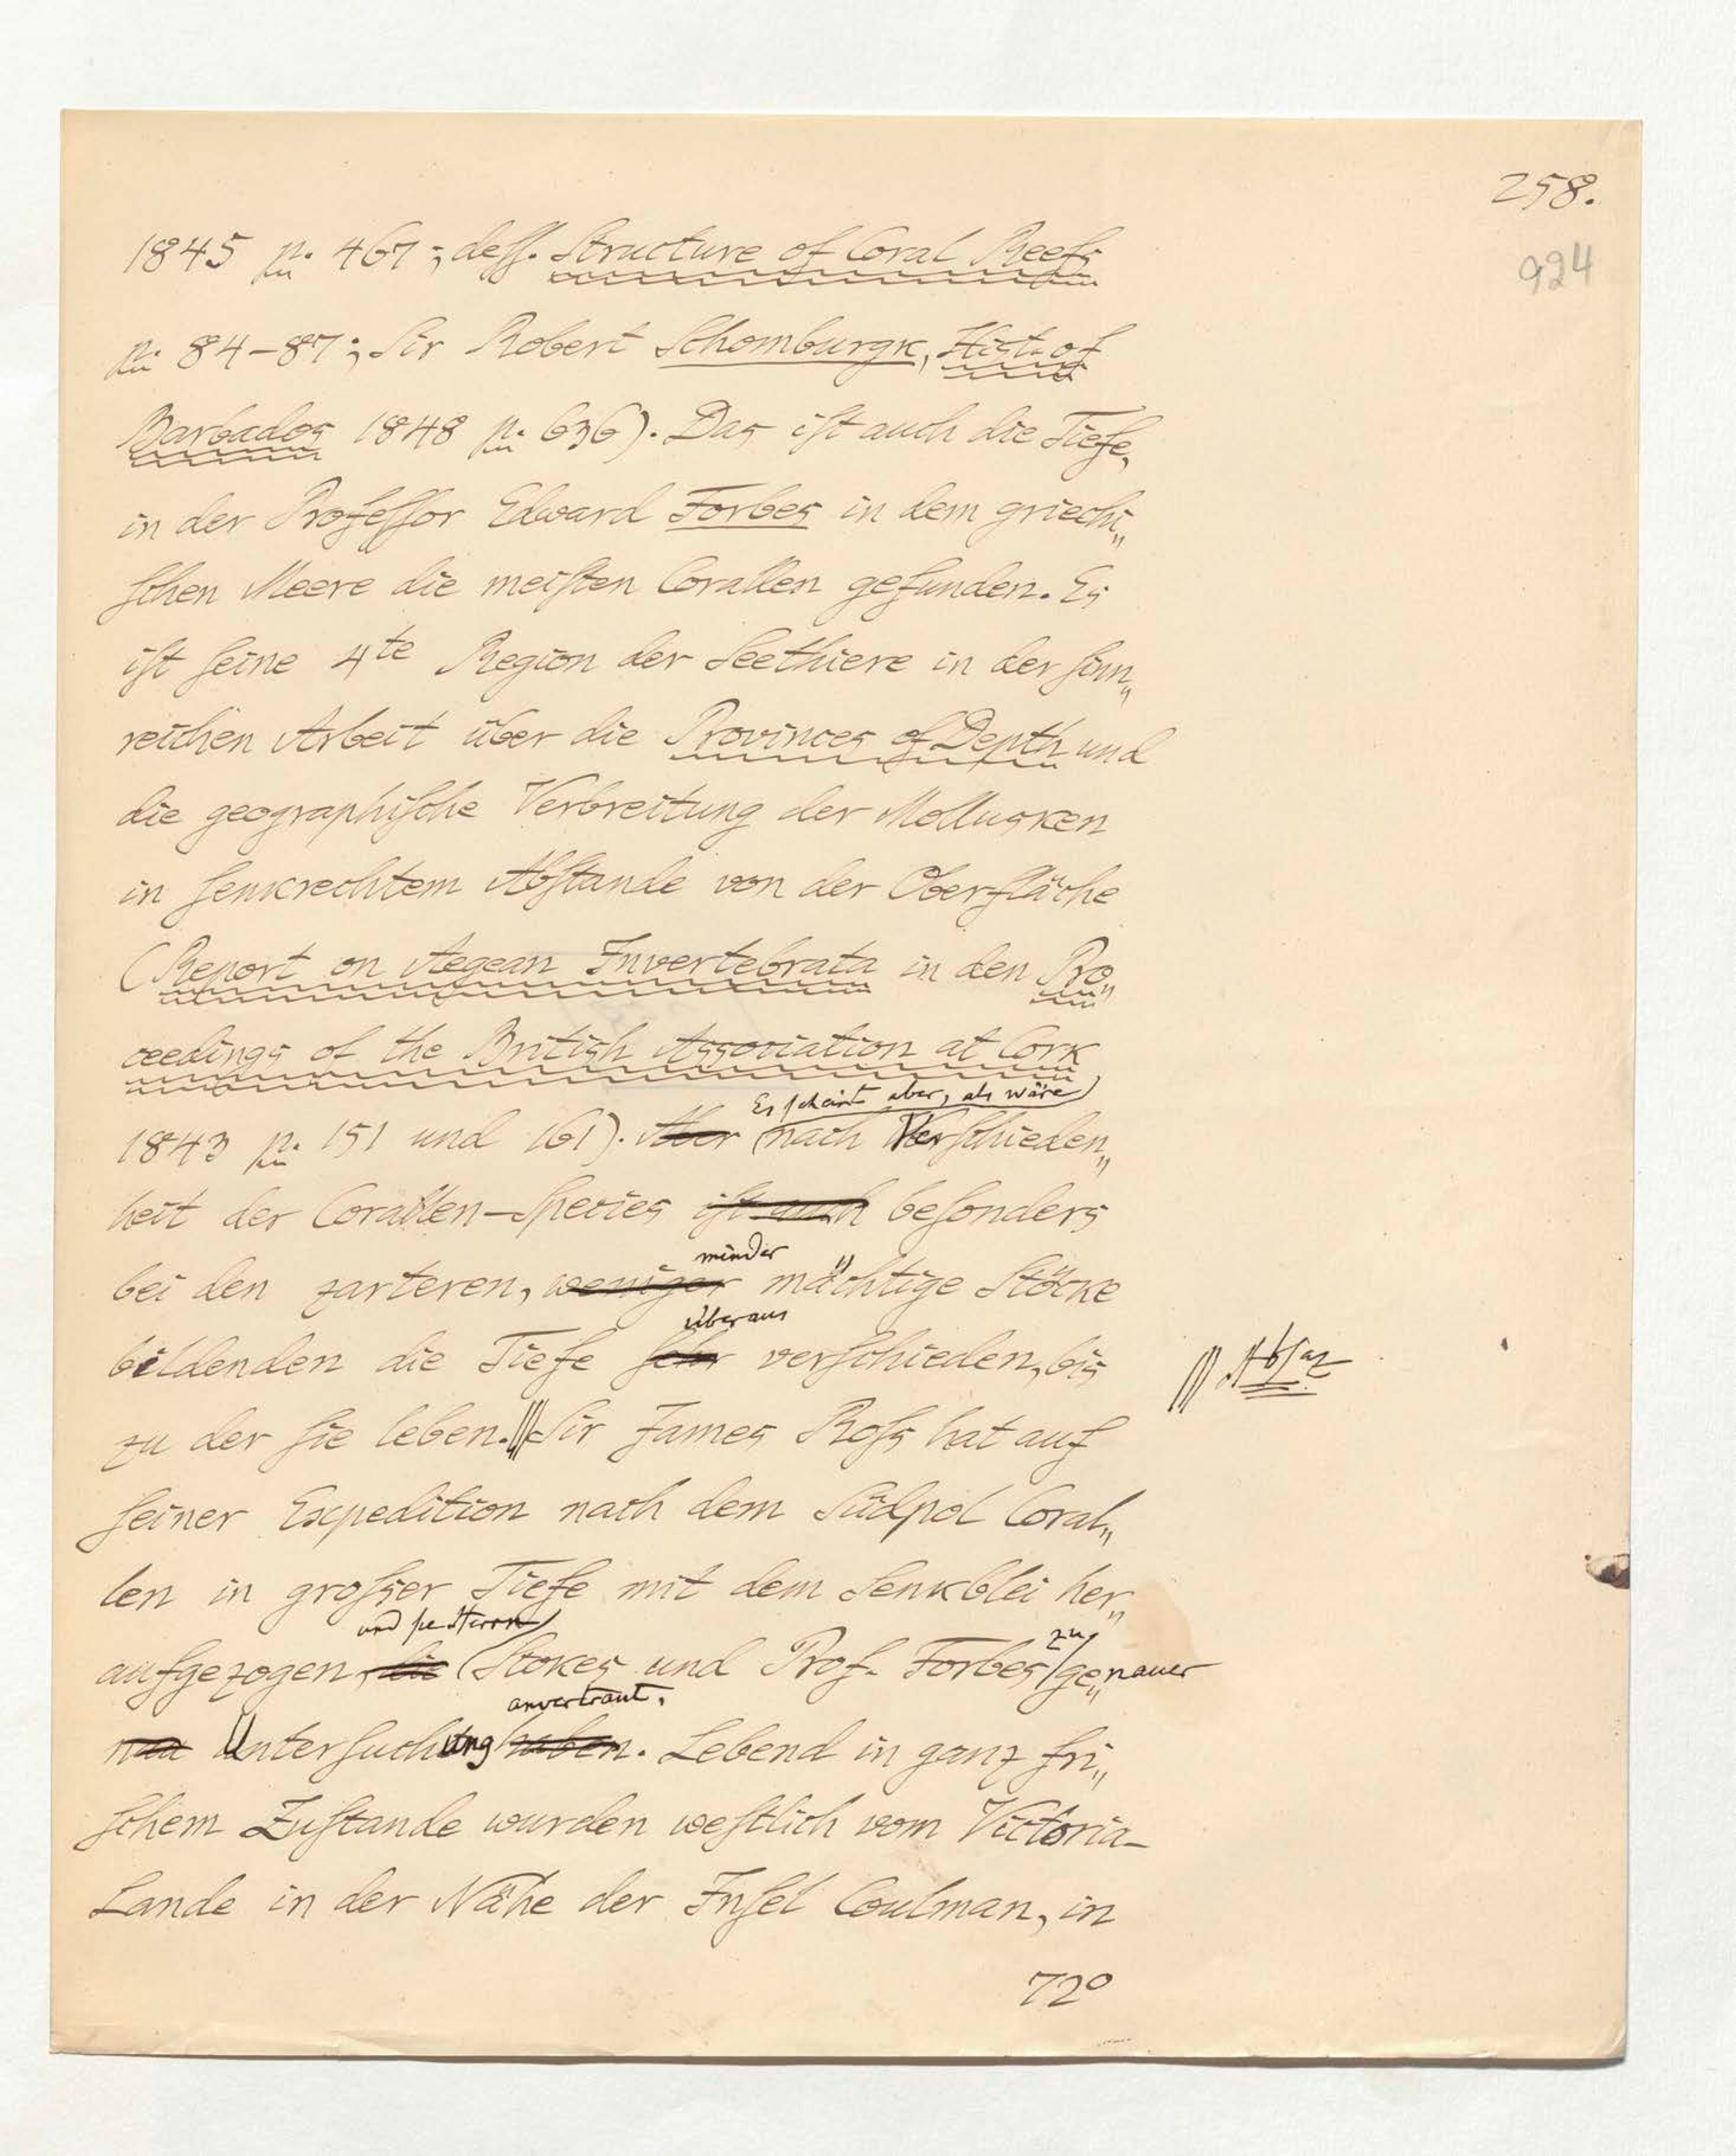 258.
924
1845 p. 467; desſ. Structure of Coral Reefs
p. 84-87; Sir Robert Schomburgk, Hist. of
Barbados 1848 p. 636). Das iſt auch die Tiefe,
in der Profeſſor Edward Forbes in dem griechi„
ſchen Meere die meiſten Corallen gefunden. Es
iſt ſeine 4te Region der Seethiere in der ſinn„
reichen Arbeit über die Provinces of Depth und
die geographiſche Verbreitung der Mollusken
in ſenkrechtem Abſtande von der Oberfläche
(Report on Aegean Invertebrata in den Pro„
ceedings of the British Association at Cork
Es ſcheint aber, als wäre
1843 p. 151 und 161). Aber nach Verſchieden„
heit der Corallen-Species iſt auch beſonders
minder
bei den zarteren, weniger mächtige Stöcke
überaus
bildenden die Tiefe ſehr verſchieden, bis
Abſaz
zu der ſie leben. Sir James Roſs hat auf
ſeiner Expedition nach dem Südpol Coral„
len in groſser Tiefe mit dem Senkblei her„
und ſie Herrn
zu
aufgezogen, die Stokes und Prof. Forbes ge„nauer
anvertraut.
Unterſuchung haben. Lebend in ganz fri„
ſchem Zuſtande wurden weſtlich vom Victoria-
Lande in der Nähe der Inſel Coulman, in
72°